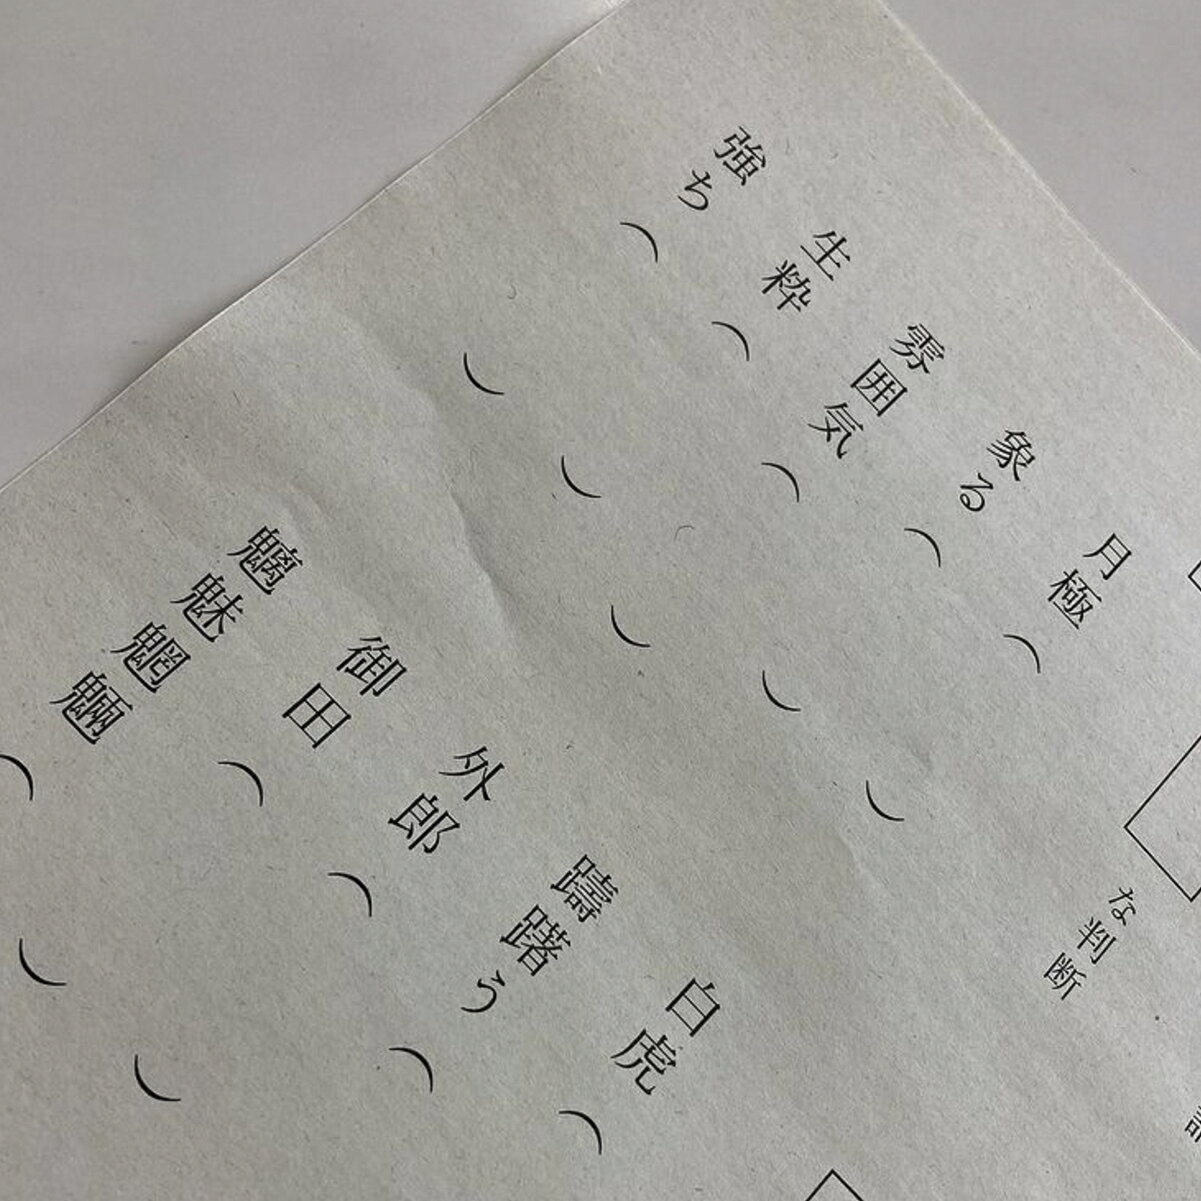 月極（　）
象る（　）
雰囲気（　）
生粋（　）
強ち（　）
な判断
白虎（
躊躇う（
外郎（
御田（　）
魑魅魍魎（　）